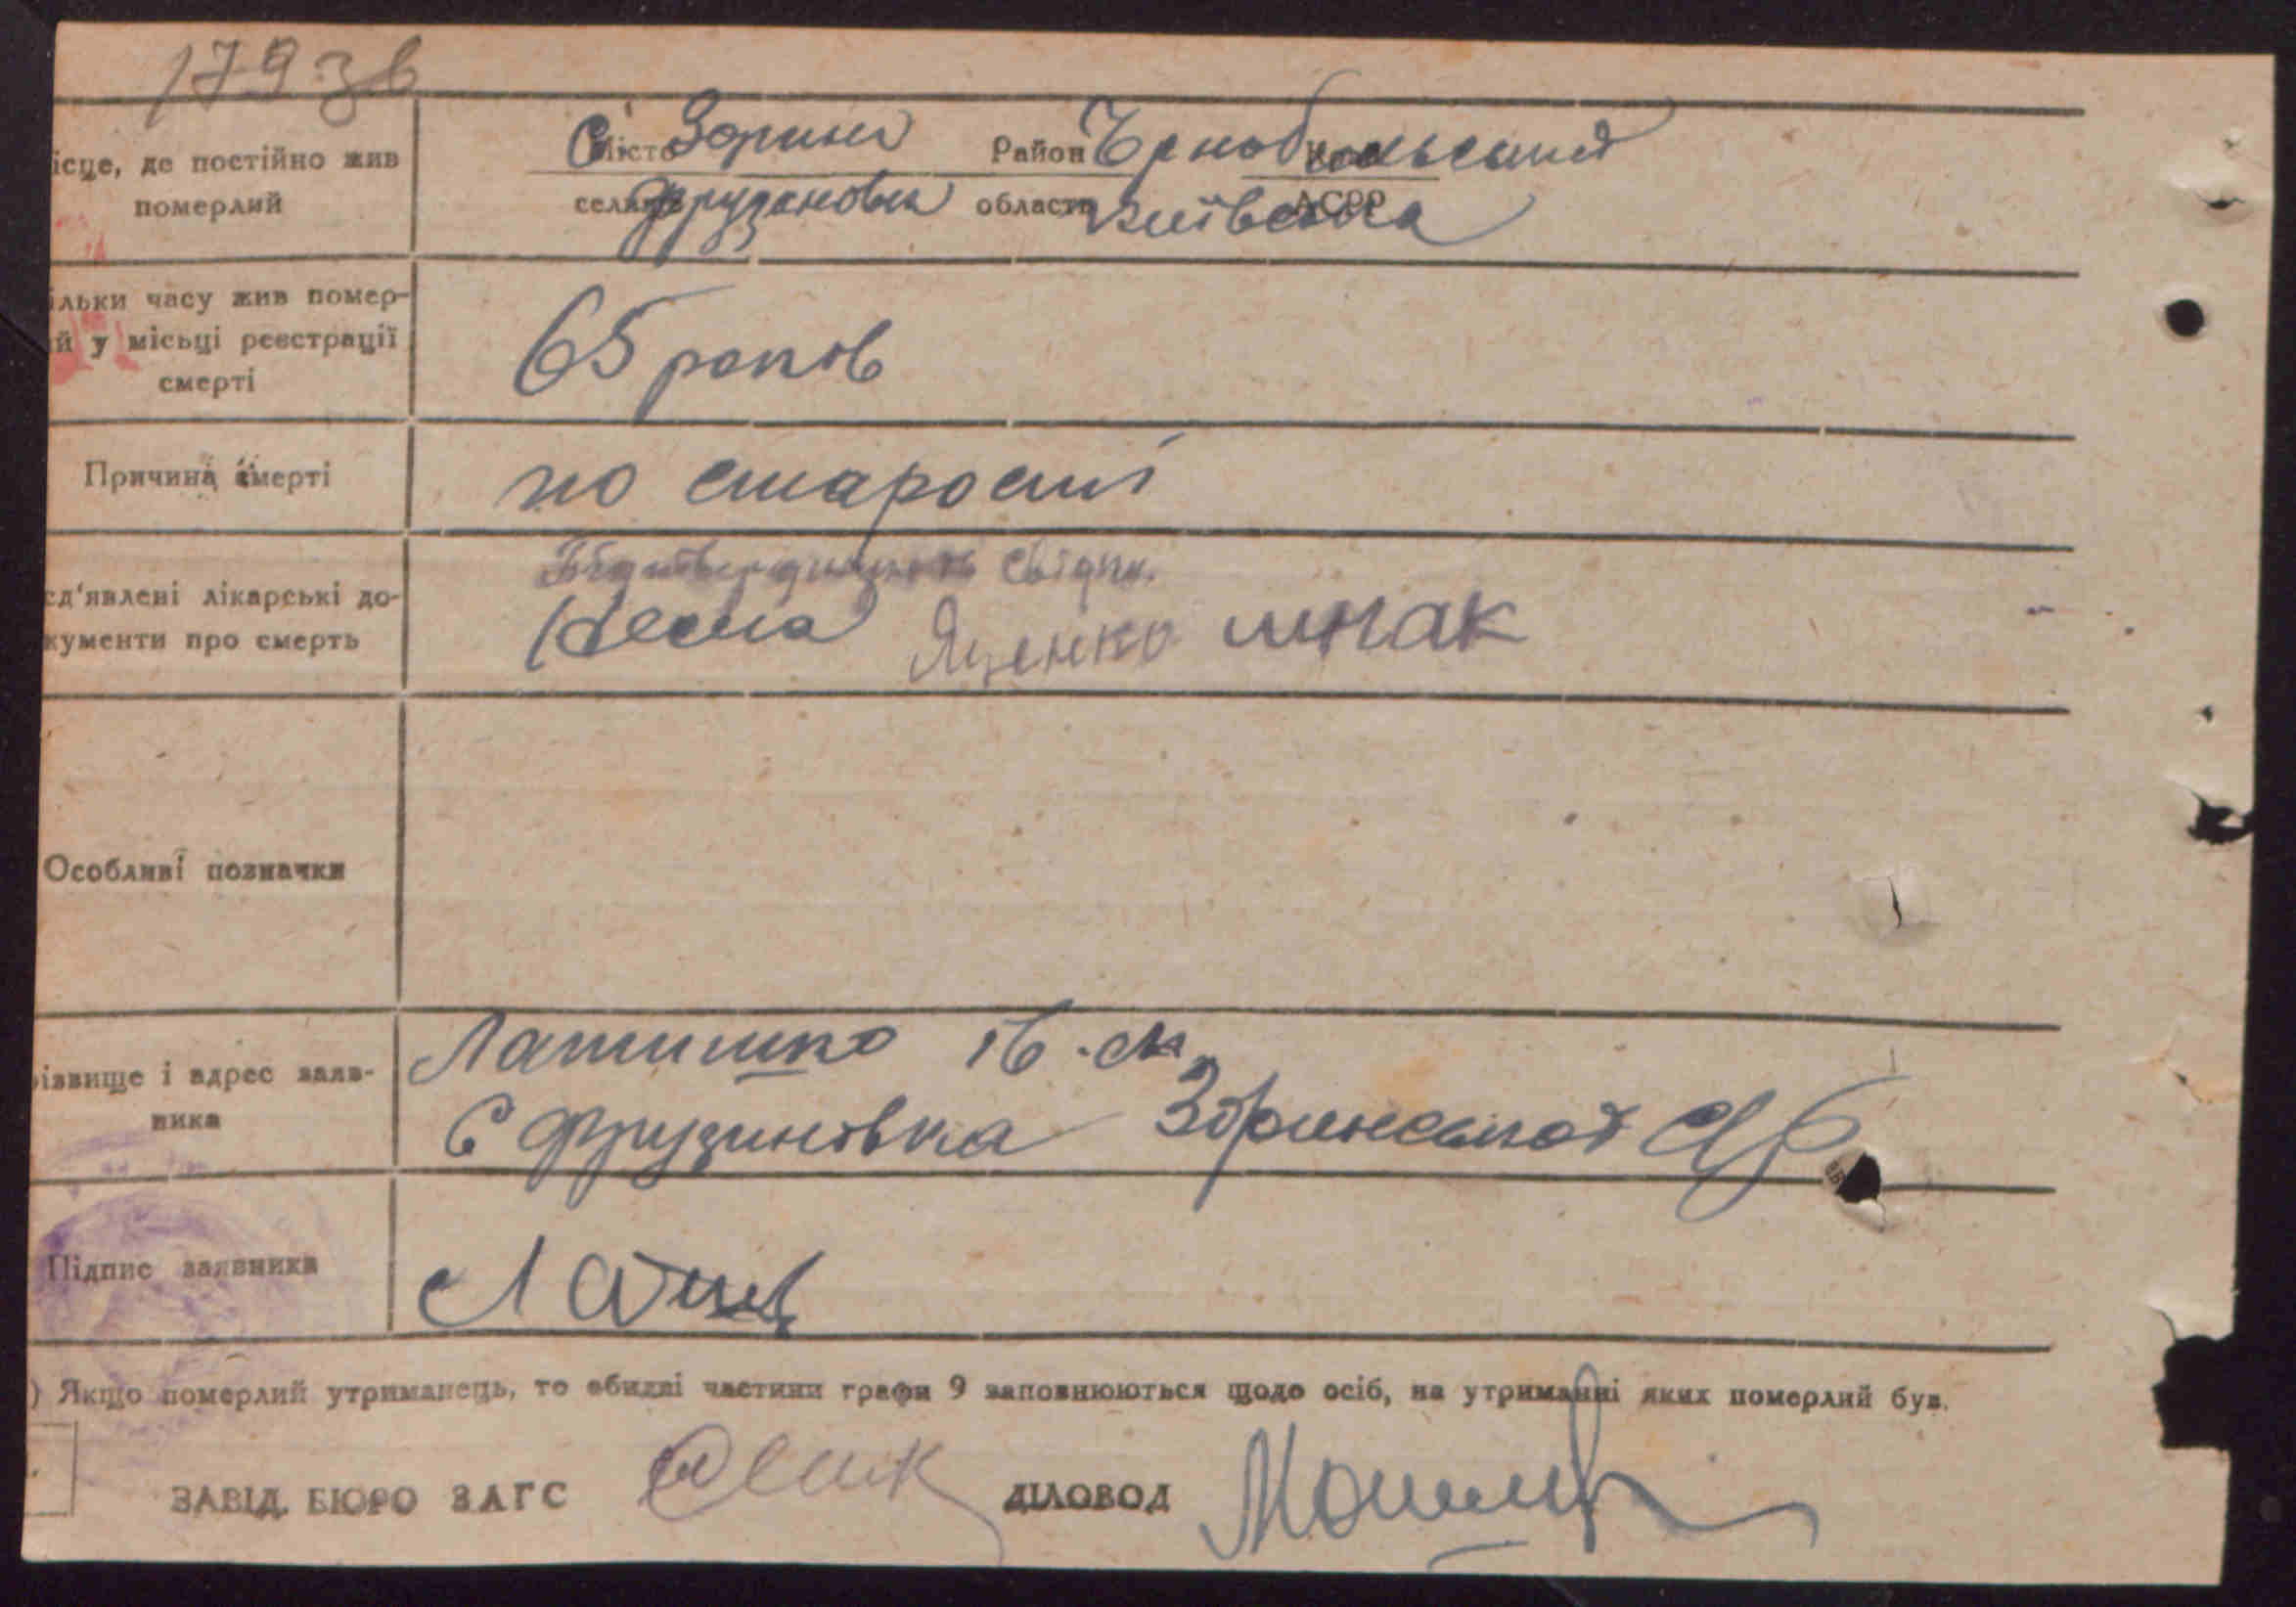 179 зв
ісце, де постійно жив
померлий
Місто Зорин Район Чрнобильський Край
селище Фрузановка область Київська АСРР
ільки часу жив помер-
й у місьці реєстрації
смерті
65 років
Причина смерті
по старості
ед'явлені лікарські до-
кументи про смерть
свідки.
Яценко
Особливі позначки
різвище і адрес заяв-
ника
Латишко Ів. М
С Фрузиновка Зоринської С/Р
Підпис заявника
) Якщо померлий утриманець, то обидві частини графи 9 заповнюються щодо осіб, на утриманні яких померлий був.
ЗАВІД. БЮРО ЗАГС ДІЛОВОД